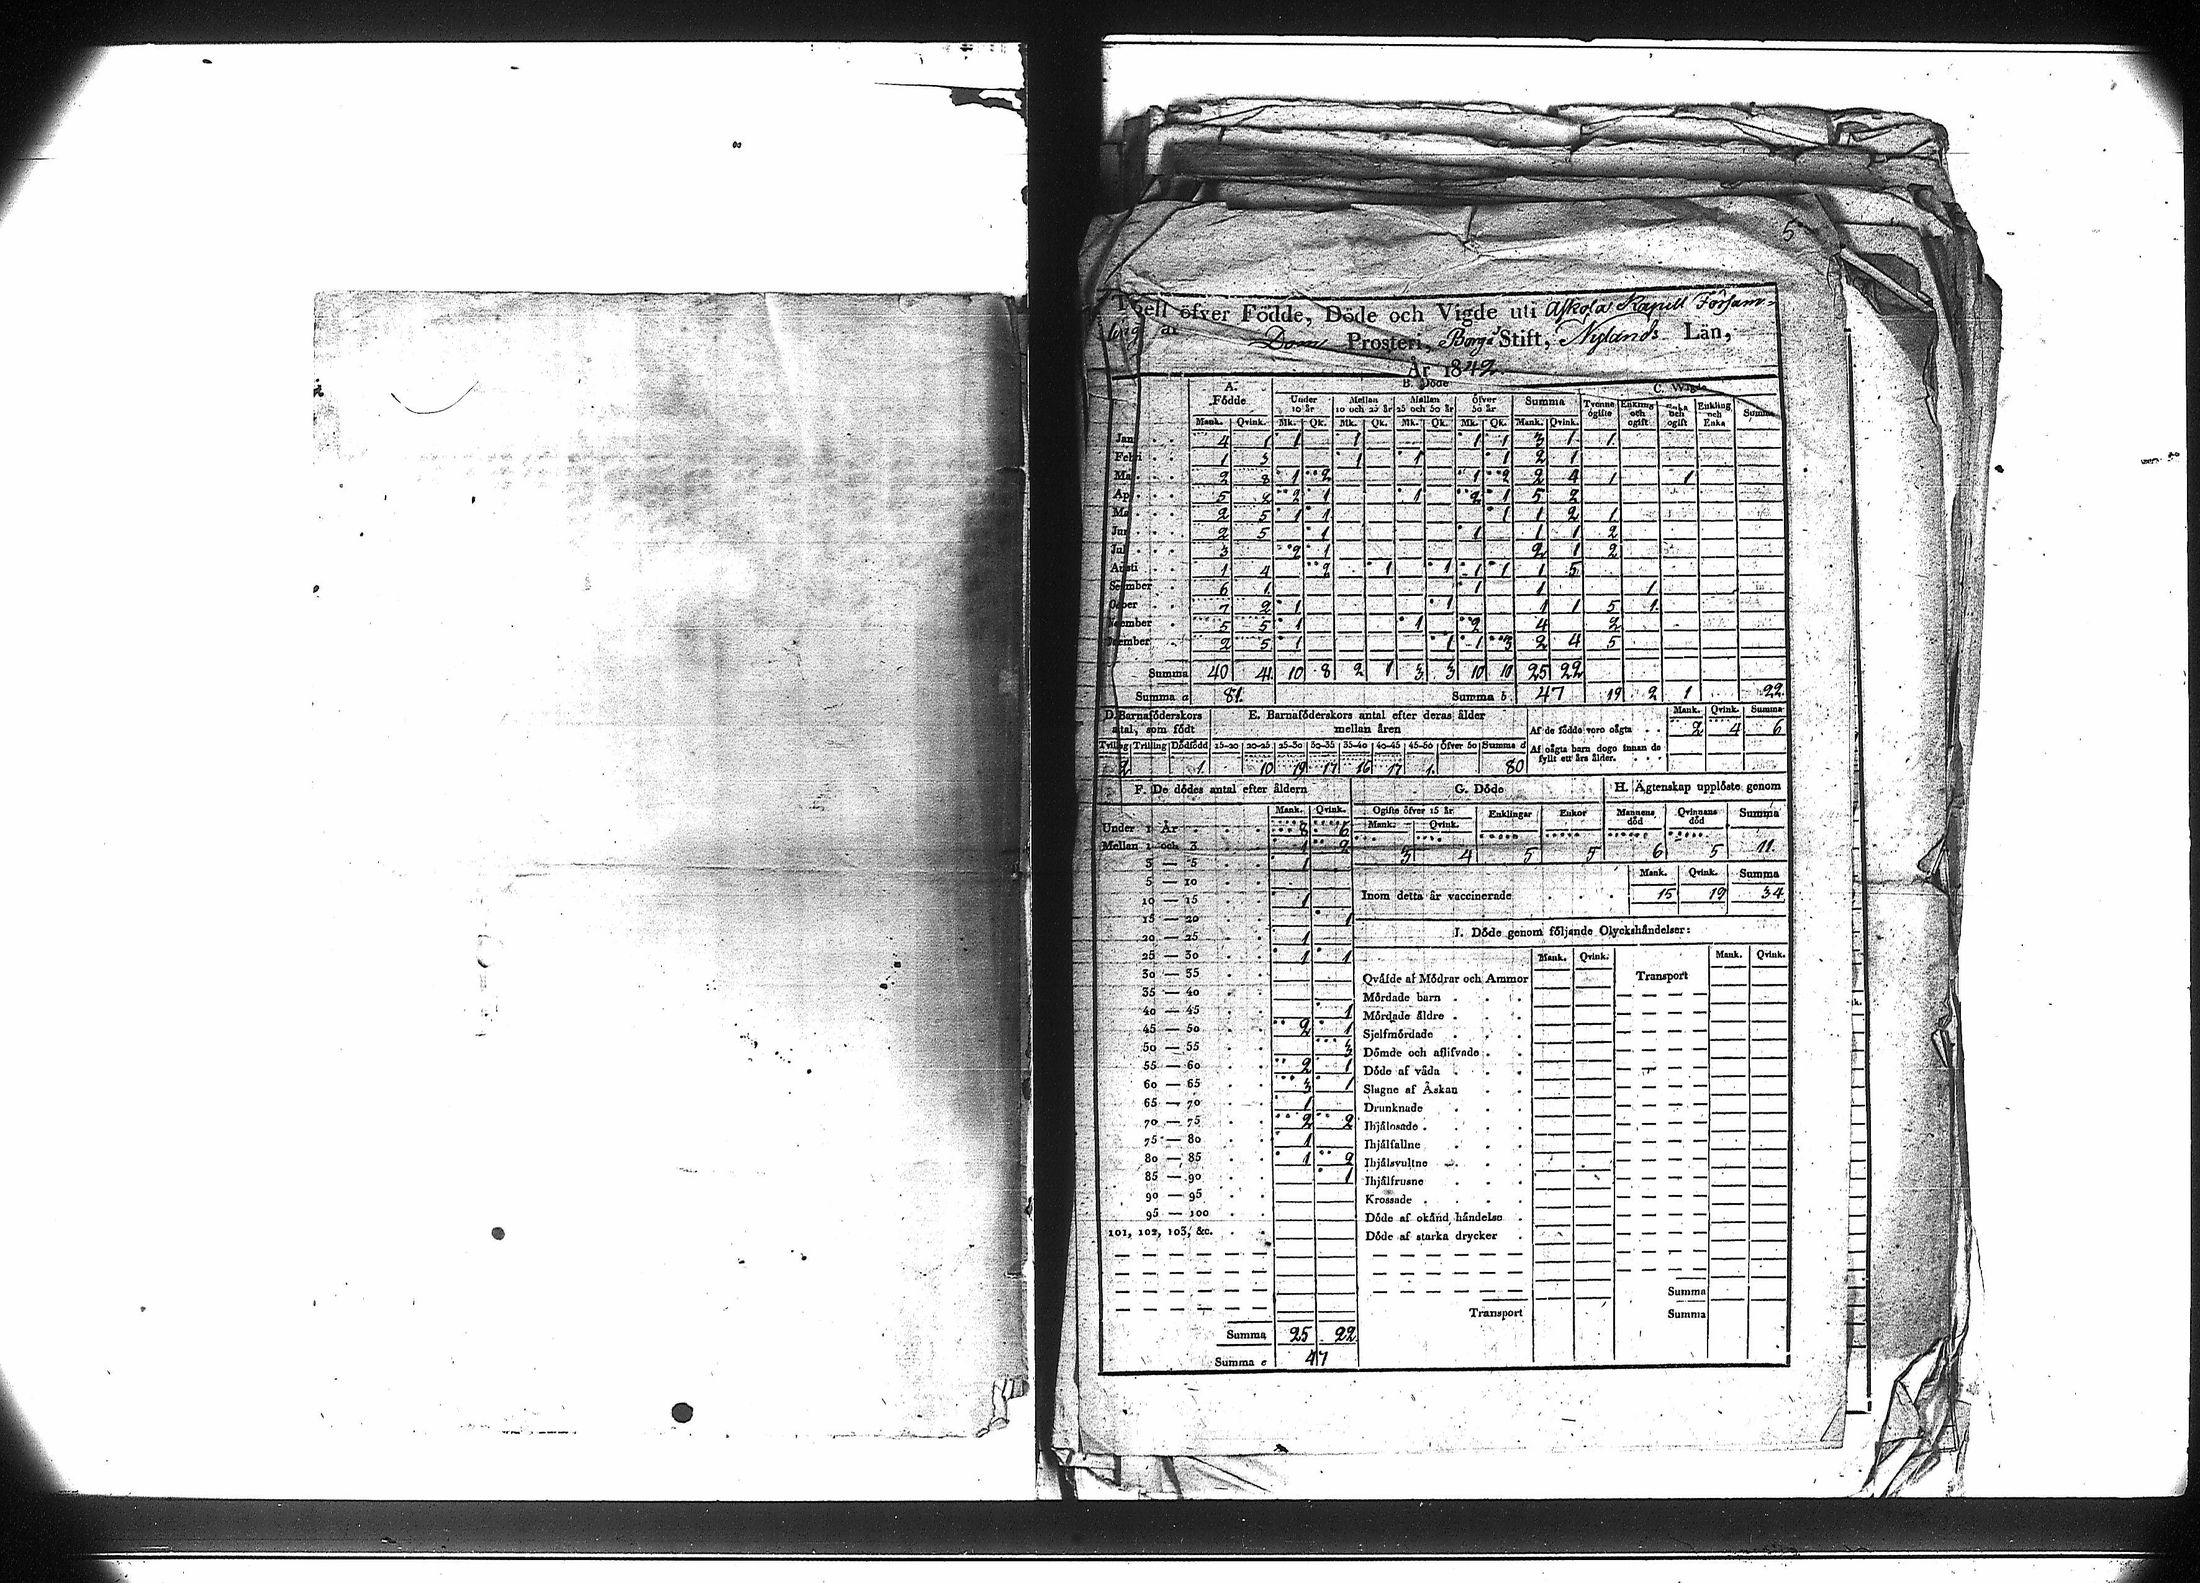 5
Tabell öfver Födde, Döde och Vigde uti Askola Kapell Försam-
ling af Dom Prosteri, Borgå Stift, Nylands Län,
År 1842.
A. Födde B. Döde C. Wigde
Under 10 år Mellan 10 och 25 år Mellan 25 och 50 år Öfver 50 år Summa Tvenne ogifte Enkling och ogift Enka och ogift Enkling och Enka Summa
Mank. Qvink. Mk. Qk. Mk. Qk. Mk. Qk. Mk. Qk. Mank. Qvink.
Jan 4 1 1 1 1 1 3 1 1
Febr 1 3 1 1 1 2 1
Ma 2 8 1 2 1 2 2 4 1 1
Ap 5 2 2 1 1 2 1 5 2
Ma 2 5 1 1 1 1 2 1
Jun 2 5 1 1 1 1 2
Jul 3 2 1 2 1 2
Austi 1 4 2 1 1 1 1 1 5
Sember 6 1 1 1 1
Ober 7 2 1 1 1 1 5 1
ember 5 5 1 1 2 4 2
ember 2 5 1 1 1 3 2 4 5
Summa 40 41 10 8 2 1 3 3 10 10 25 22
Summa a 81. Summa b 47 19 2 1 22
D. Barnaföderskors antal, som födt
E. Barnaföderskors antal efter deras ålder mellan åren
Mank. Qvink. Summa
Af de födde voro oägta 2 4 6
Af oägta barn dogo innan de fyllt ett års ålder.
Tvilling Trilling Dödfödd 15-20 20-25 25-30 30-35 35-40 40-45 45-50 öfver 50 Summa d
2 1 10 19 17 16 17 1 80
F. De dödes antal efter åldern
Mank. Qvink.
Under 1 År 8 6
Mellan 1 och 3 1 2
3 — 5 1
5 — 10
10 — 15 1
15 — 20 1
20 — 25 1
25 — 30 1 1
30 — 35
35 — 40
40 — 45 1
45 — 50 2 1
50 — 55 3
55 — 60 2 1
60 — 65 3 1
65 — 70 1
70 — 75 2 2
75 — 80 1
80 — 85 1 2
85 — 90 1
90 — 95
95 — 100
101, 102, 103, &c.
Summa 25 22
Summa e 47
G. Döde
Ogifte öfver 15 år Enklingar Enkor
Mank. Qvink.
3 4 5 5
H. Ägtenskap upplöste genom
Mannens död Qvinnans död Summa
6 5 11
Mank. Qvink. Summa
Inom detta år vaccinerade 15 19 34
I. Döde genom följande Olyckshändelser:
Mank. Qvink. Mank. Qvink.
Qväfde af Mödrar och Ammor Transport
Mördade barn
Mördade äldre
Sjelfmördade
Dömde och aflifvade
Döde af våda
Slagne af Åskan
Drunknade
Ihjälosade
Ihjälfallne
Ihjälsvultne
Ihjälfrusne
Krossade
Döde af okänd händelse
Döde af starka drycker
Summa
Transport Summa